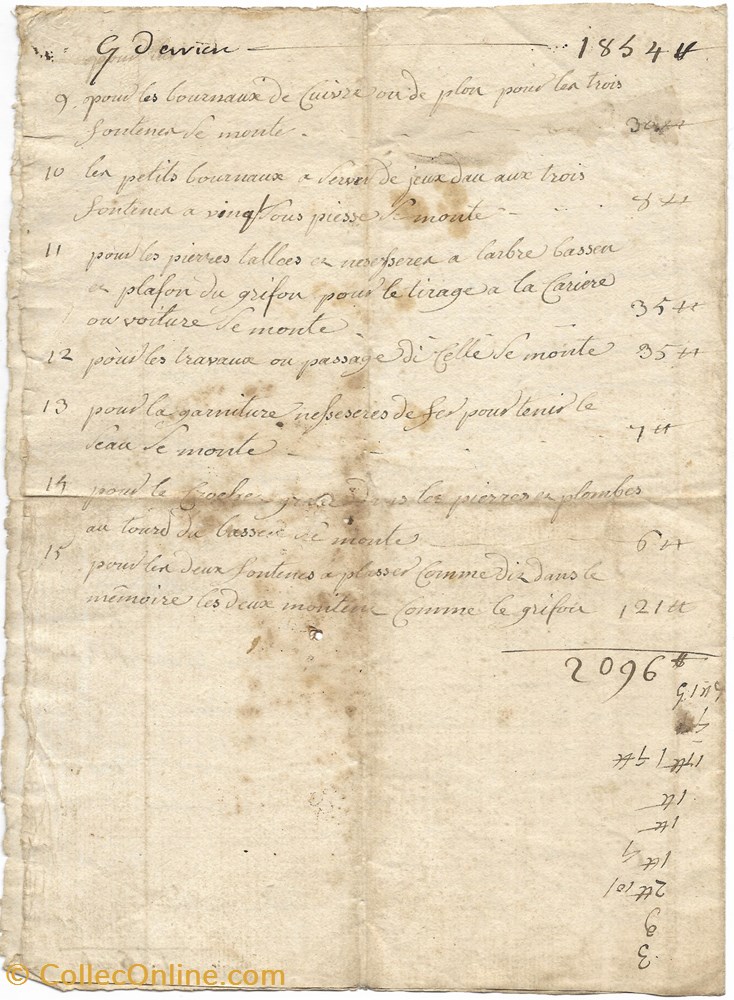 Cy derrien 1854 ₶
9 pour les bournaux de Cuivre ou de plon pour les trois
fontenes se monte 30 ₶
10 les petits bournaux a server de jeux dau aux trois
fontenes a vingt sous piesse se monte 8 ₶
11 pour les pierres tallees et nesesseres a larbre bassen
et plafon du grifon pour le tirage a la Cariere
ou voiture se monte 35 ₶
12 pour les travaux ou passage de Celle se monte 35 ₶
13 pour la garniture nesseseres de fer pour tenir le
seau se monte 7 ₶
14 pour le Crochet les pierres et plombes
au tourd du bassen se monte 6 ₶
15 pour les deux fontenes a plasser Comme dit dans le
mémoire les deux montent Comme le grifon 121 ₶
2096 ₶
1 ₶
1 ₶
1 ₶
2 ₶ 101
9
3
CollecOnline.com